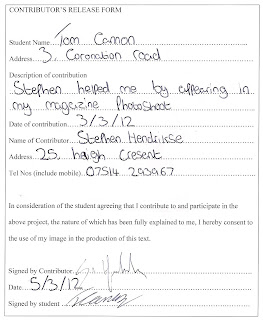 CONTRIBUTOR'S RELEASE FORM
Student Name Tom Cannon
Address 3, Coronation road
Description of contribution
Stephen helped me by appearing in
my magazine Photoshoot
Date of contribution 3/3/12
Name of Contributor Stephen Hendrikse
Address 25, haigh Cresent
Tel Nos (include mobile) 07514 293967
In consideration of the student agreeing that I contribute to and participate in the
above project, the nature of which has been fully explained to me, I hereby consent to
the use of my image in the production of this text.
Signed by Contributor
Date 5/3/12
Signed by student